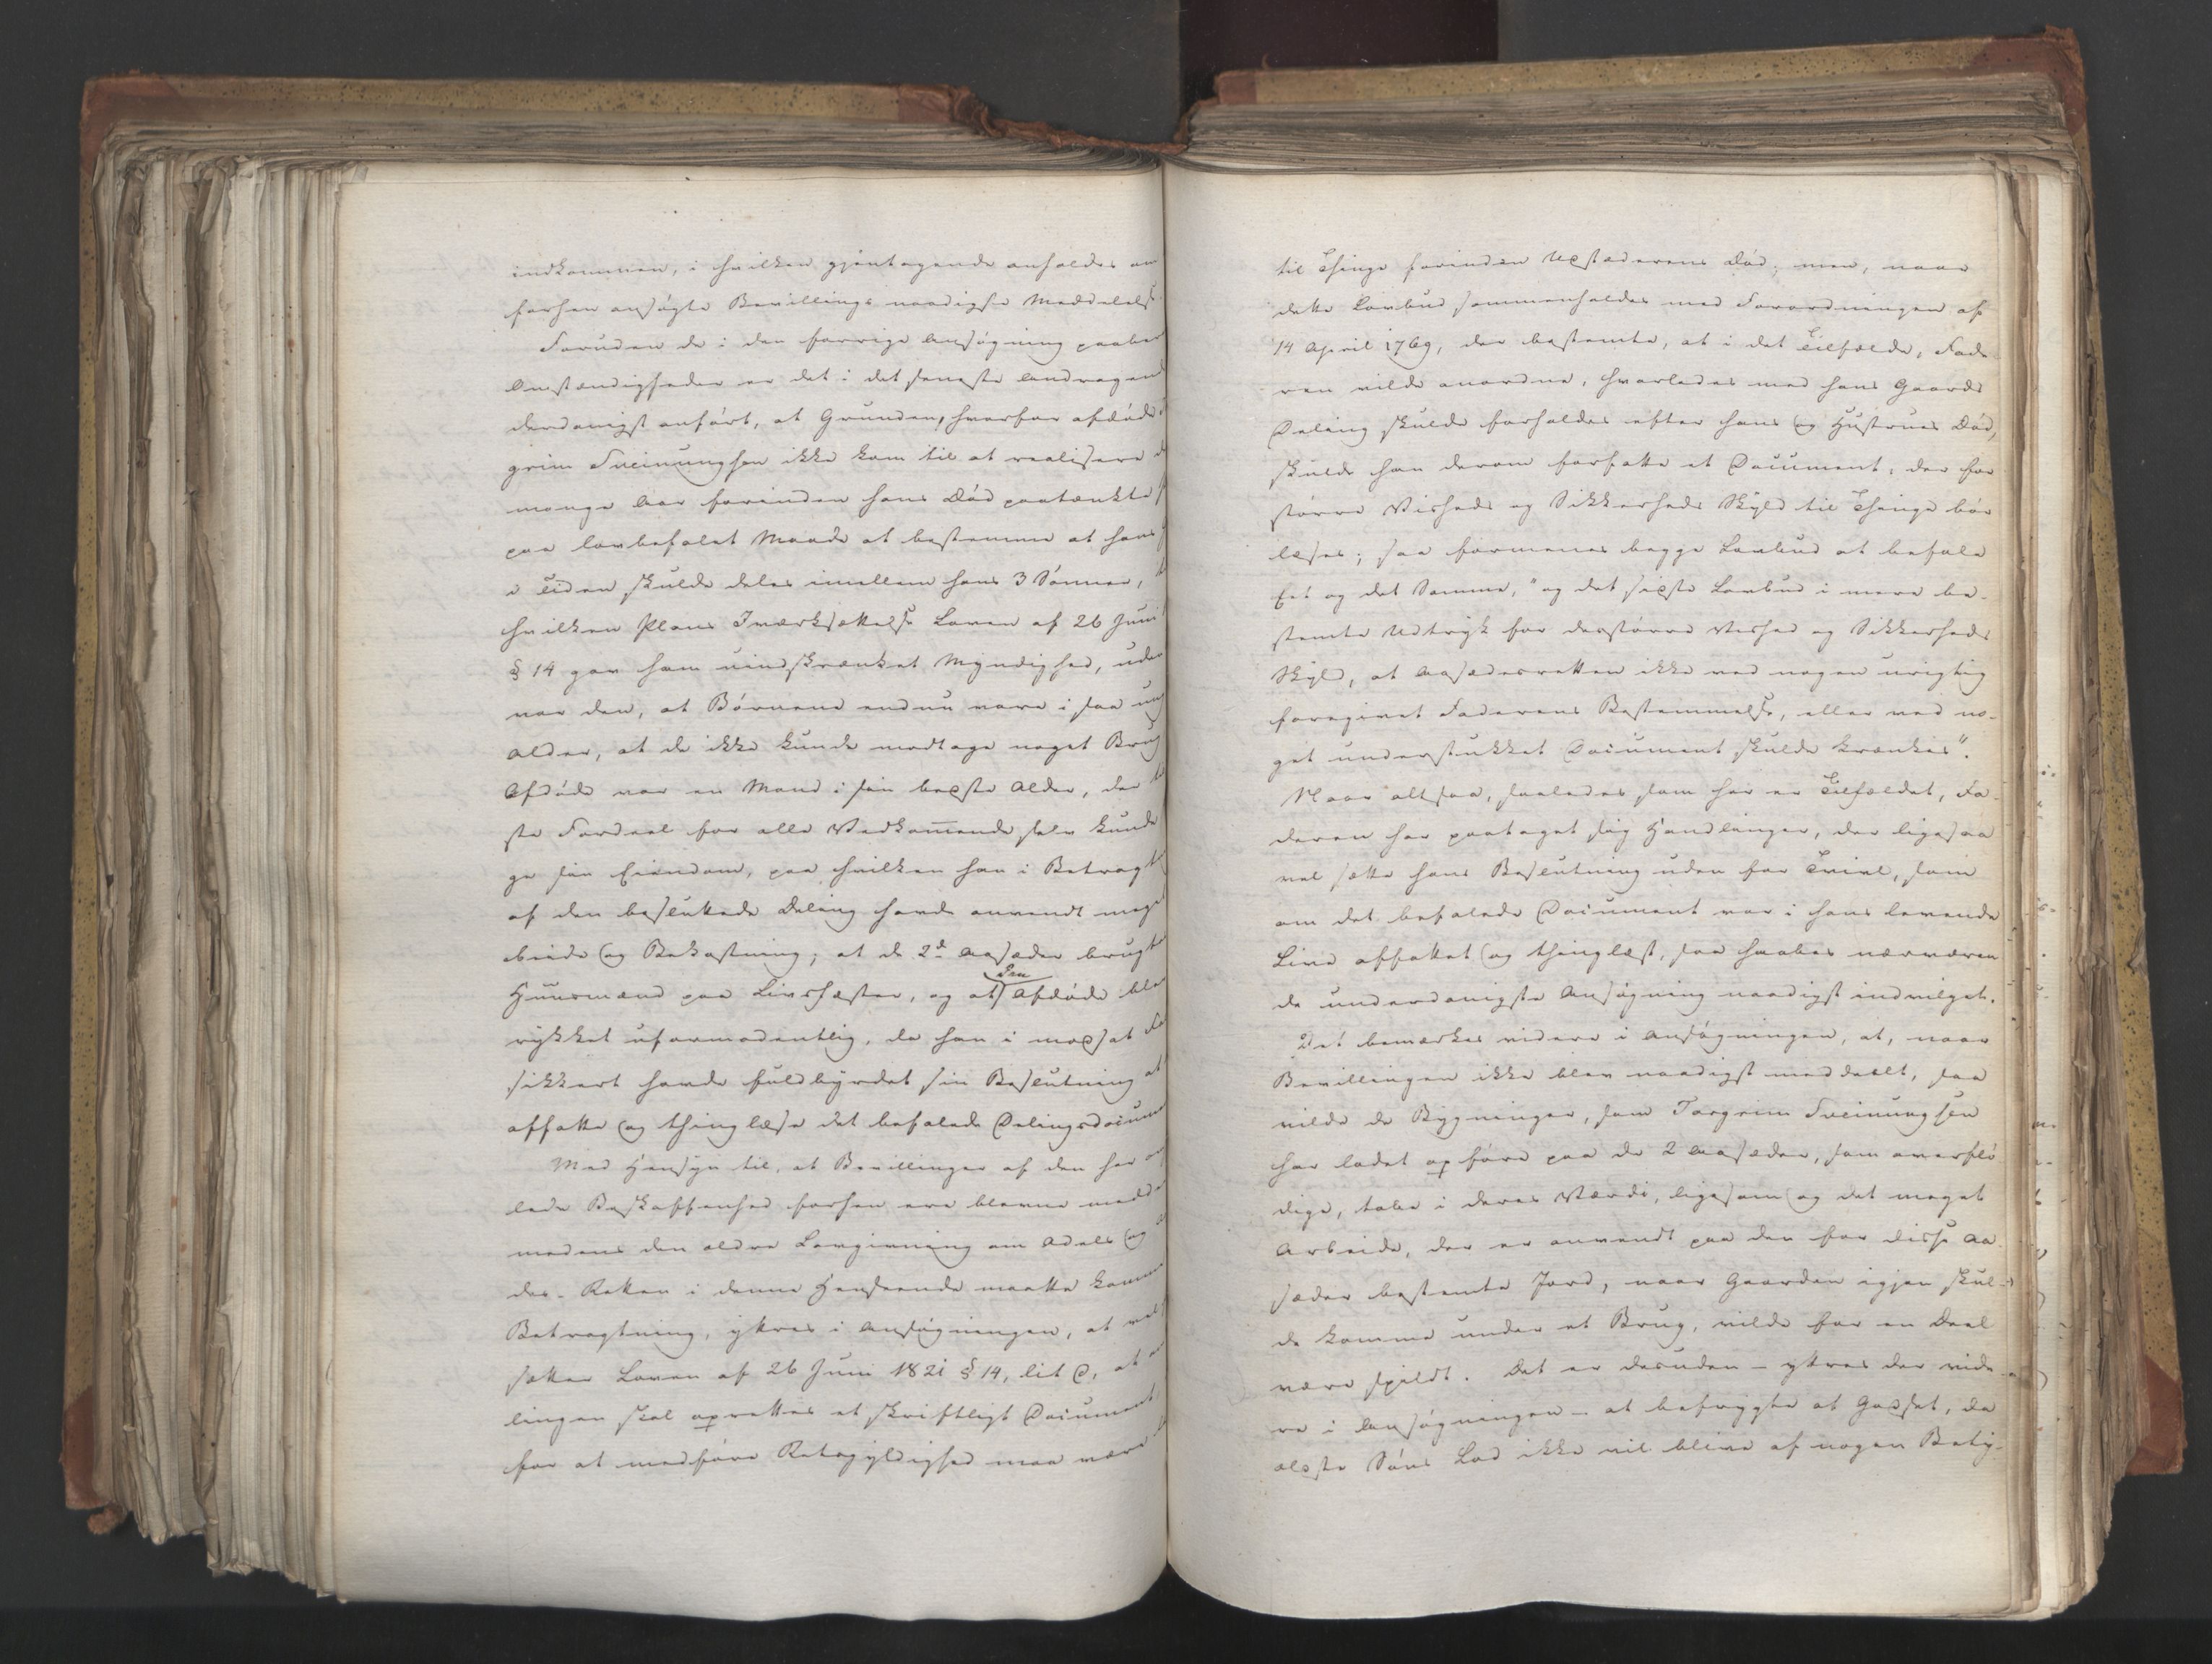 indkommen, i hvilken gjentagende anholdes om
forhen ansøgte Bevillings naadigste Meddelelse.
Foruden de i den forrige Ansøgning paabe
Omstændigheder er det i det seneste Andragen
derdanigst anført, at Grunden, hvorfor afdøde
grim Sveinungsen ikke kom til at realisere
mange Aar forinden hans Død paatænkte
paa lovbefalet Maade at bestemme at hans
i Tiden skulde deles imellem hans 3 Sønner,
hvilken Plans Iværksættelse Loven af 26 Juni
§ 14 gav ham uindskrænket Myndighed, uden
var den, at Børnene endnu vare i saa ung
Alder, at de ikke kunde modtage noget Brug
Afdøde var en Mand i sin bedste Alder, der
ste Fordeel for alle Vedkommende selv kunde
ge sin Eiendom, paa hvilken han i Betragt
af den besluttede Deling havde anvendt meget
beide og Bekostning; at de 2de Aasæder brugte
Huusmænd paa Livsfæster, og at den Afdøde blev
rykket uformodentlig, da han i modsat Fa
sikkert havde fuldbyrdet sin Beslutning at
affatte og thinglæse det befalede Delingsdocume
Med Hensyn til, at Bevillinger af den her
lede Beskaffenhed forhen ere blevne medde
medens den ældre Lovgivning om Odels og
des-Retten i denne Henseende maatte komme
Betragtning, yttres i Ansøgningen, at vel
sætter Loven af 26 Juni 1821 § 14, lit c, at
lingen skal oprettes et skriftligt Document
for at medføre Retsgyldighed maa være
til Thinge forinden Udstæderens Død; men, naar
dette Lovbud sammenholdes med Forordningen af
14 April 1769, der bestemte, at i det Tilfælde, Fade-
ren vilde anordne, hvorledes med hans Gaards
Deling skulde forholdes efter hans og Hustrues Død,
skulde han derom forfatte et Document, der for
større Visheds og Sikkerheds Skyld til Thinge bør
læses; saa formenes begge Lovbud at befale
Eet og det Samme, "og det sidste Lovbud i mere be-
stemte Udtryk for desstørre Vished og Sikkerheds
Skyld, at Aasædesretten ikke ved nogen urigtig
foregivet Faderens Bestemmelse, eller ved no-
get understukket Document skulde krænkes".
Naar altsaa, saaledes som her er Tilfældet, Fa-
deren har paataget sig Handlinger, der ligesaa
vel sætte hans Beslutning uden for Tvivl, som
om det befalede Document var i hans levende
Live affattet og thinglæst, saa haabes nærværen
de underdanigste Ansøgning naadigst indvilget.
Det bemærkes videre i Ansøgningen, at, naar
Bevillingen ikke blev naadigst meddeelt, saa
vilde de Bygninger, som Torgrim Sveinungsen
har ladet opføre paa de 2 Aasæder, som overflø
dige, tabe i deres Værdi, ligesom og det meget
Arbeide, der er anvendt paa den for disse Aa-
sæder bestemte Jord, naar Gaarden igjen skul-
de komme under et Brug, vilde for en Deel
være spildt. Det er desuden – yttres der vide-
re i Ansøgningen – at befrygte at Godset, da
ældste Søns Lod ikke vil blive af nogen Bety-